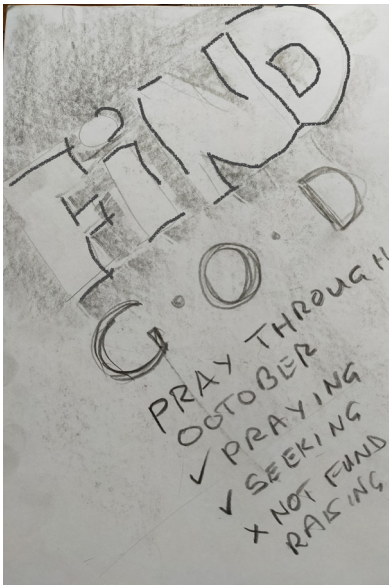 FiND
G.O.D
PRAY THROUGH
OCTOBER
✓ PRAYING
✓ SEEKING
x NOT FUND
RAISING